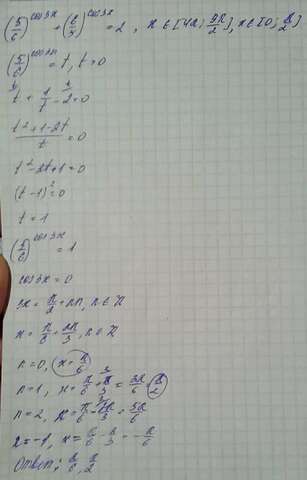 (5/6)^cos3x + (6/5)^cos3x = 2, x ∈ [4π; 9π/2], x ∈ [0; π/2]
(5/6)^cos3x = t, t > 0
t + 1/t - 2 = 0
t² + 1 - 2t / t = 0
t² - 2t + 1 = 0
(t - 1)² = 0
t = 1
(5/6)^cos3x = 1
cos3x = 0
3x = π/2 + πn, n ∈ Z
x = π/6 + πn/3, n ∈ Z
n = 0, x = π/6
n = 1, x = π/6 + π/3 = 3π/6 = π/2
n = 2, x = π/6 + 2π/3 = 5π/6
n = -1, x = π/6 - π/3 = -π/6
Ответ: π/6, π/2